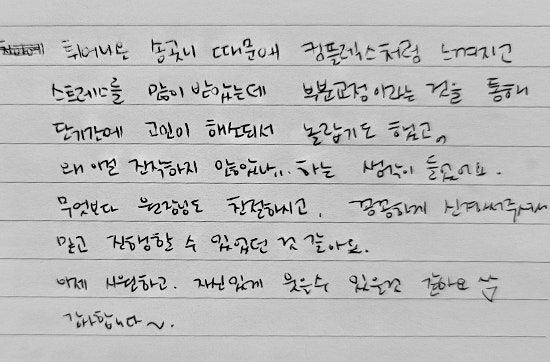 튀어나온 송곳니 때문에 컴플렉스처럼 느껴지고
스트레스를 많이 받았는데 부분교정이라는 것을 통해
단기간에 고민이 해소되서 놀랍기도 했고,
왜 이런 진작하지 않았나.. 하는 생각이 들었어요.
무엇보다 원장님도 친절하시고, 꼼꼼하게 신경써주셔서
믿고 진행할 수 있었던 것 같아요.
이제 시원하고. 자신있게 웃을수 있을것 같아요
감사합니다~.